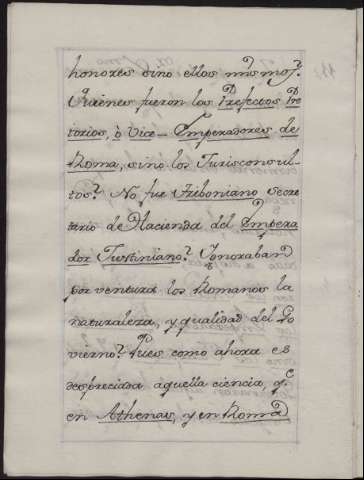 honores sino ellos mis̃mos?
Quienes fueron los Prefectos Pre
torios, ò Vice-Emperadores de
Roma, sino los Jurisconsul-
tos? No fue Triboniano secre
tario de Hacienda del Empera
dor Justiniano? Ignoraban
por ventura los Romanos la
naturaleza, y qualidad del Go
vierno? Pues como ahora es
despreciada aquella ciencia, q.e
en Athenas, y en Roma